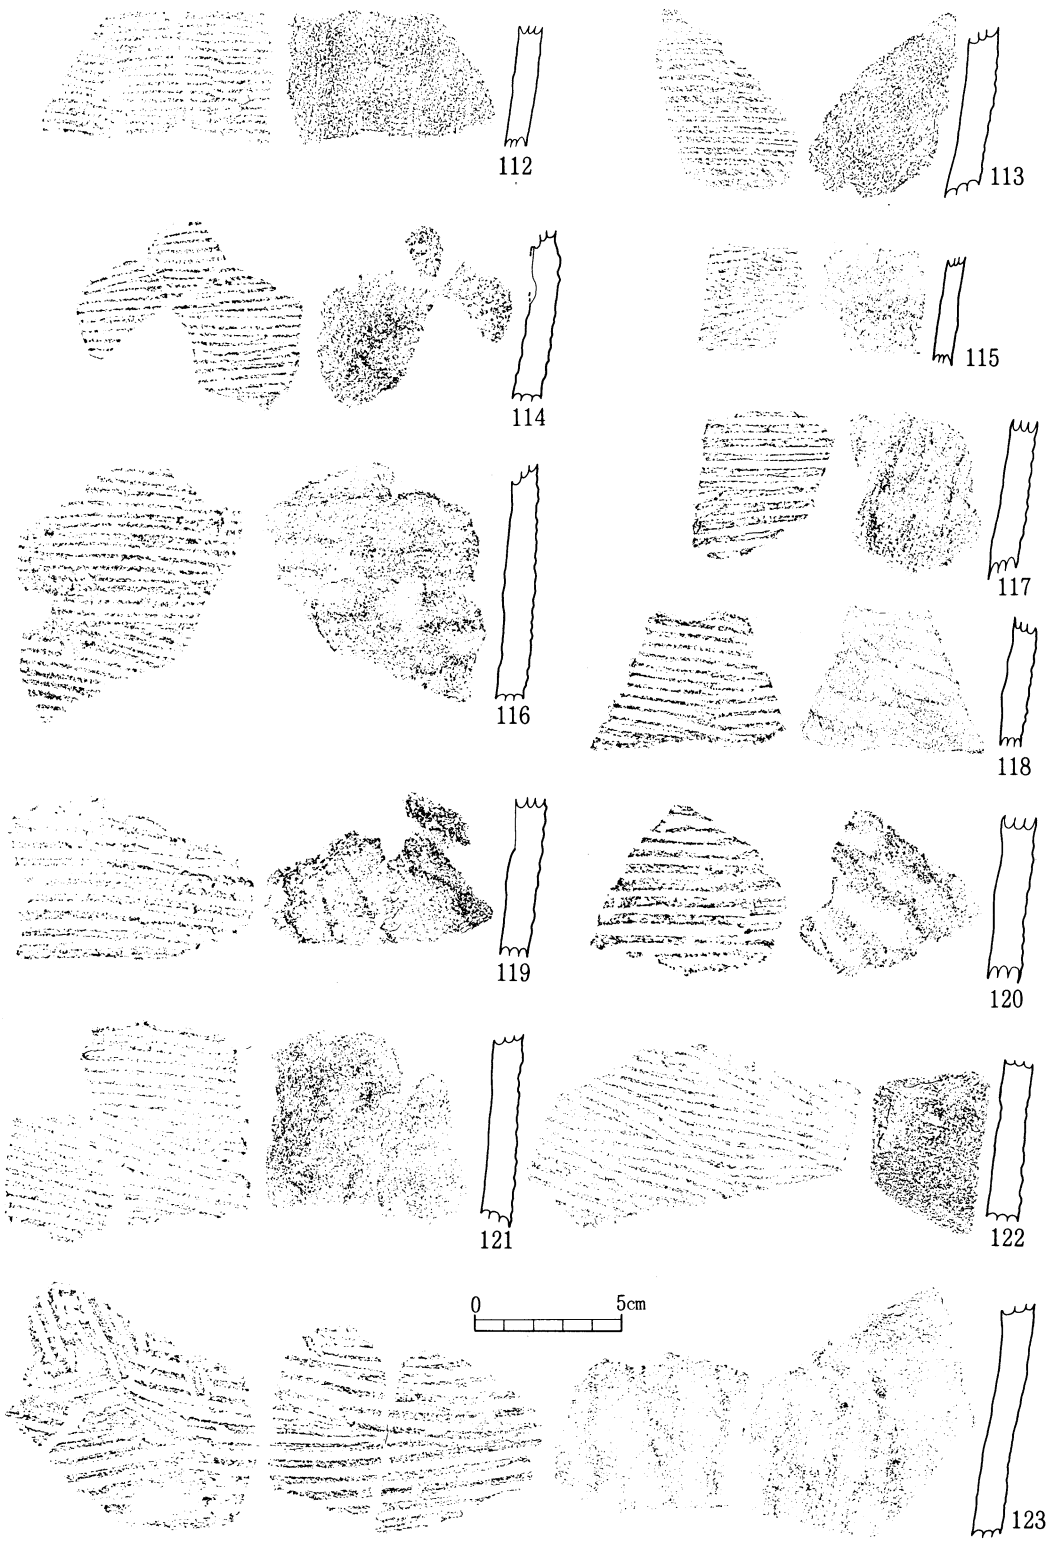 112
113
114
115
116
117
118
119
120
121
122
0 5cm
123